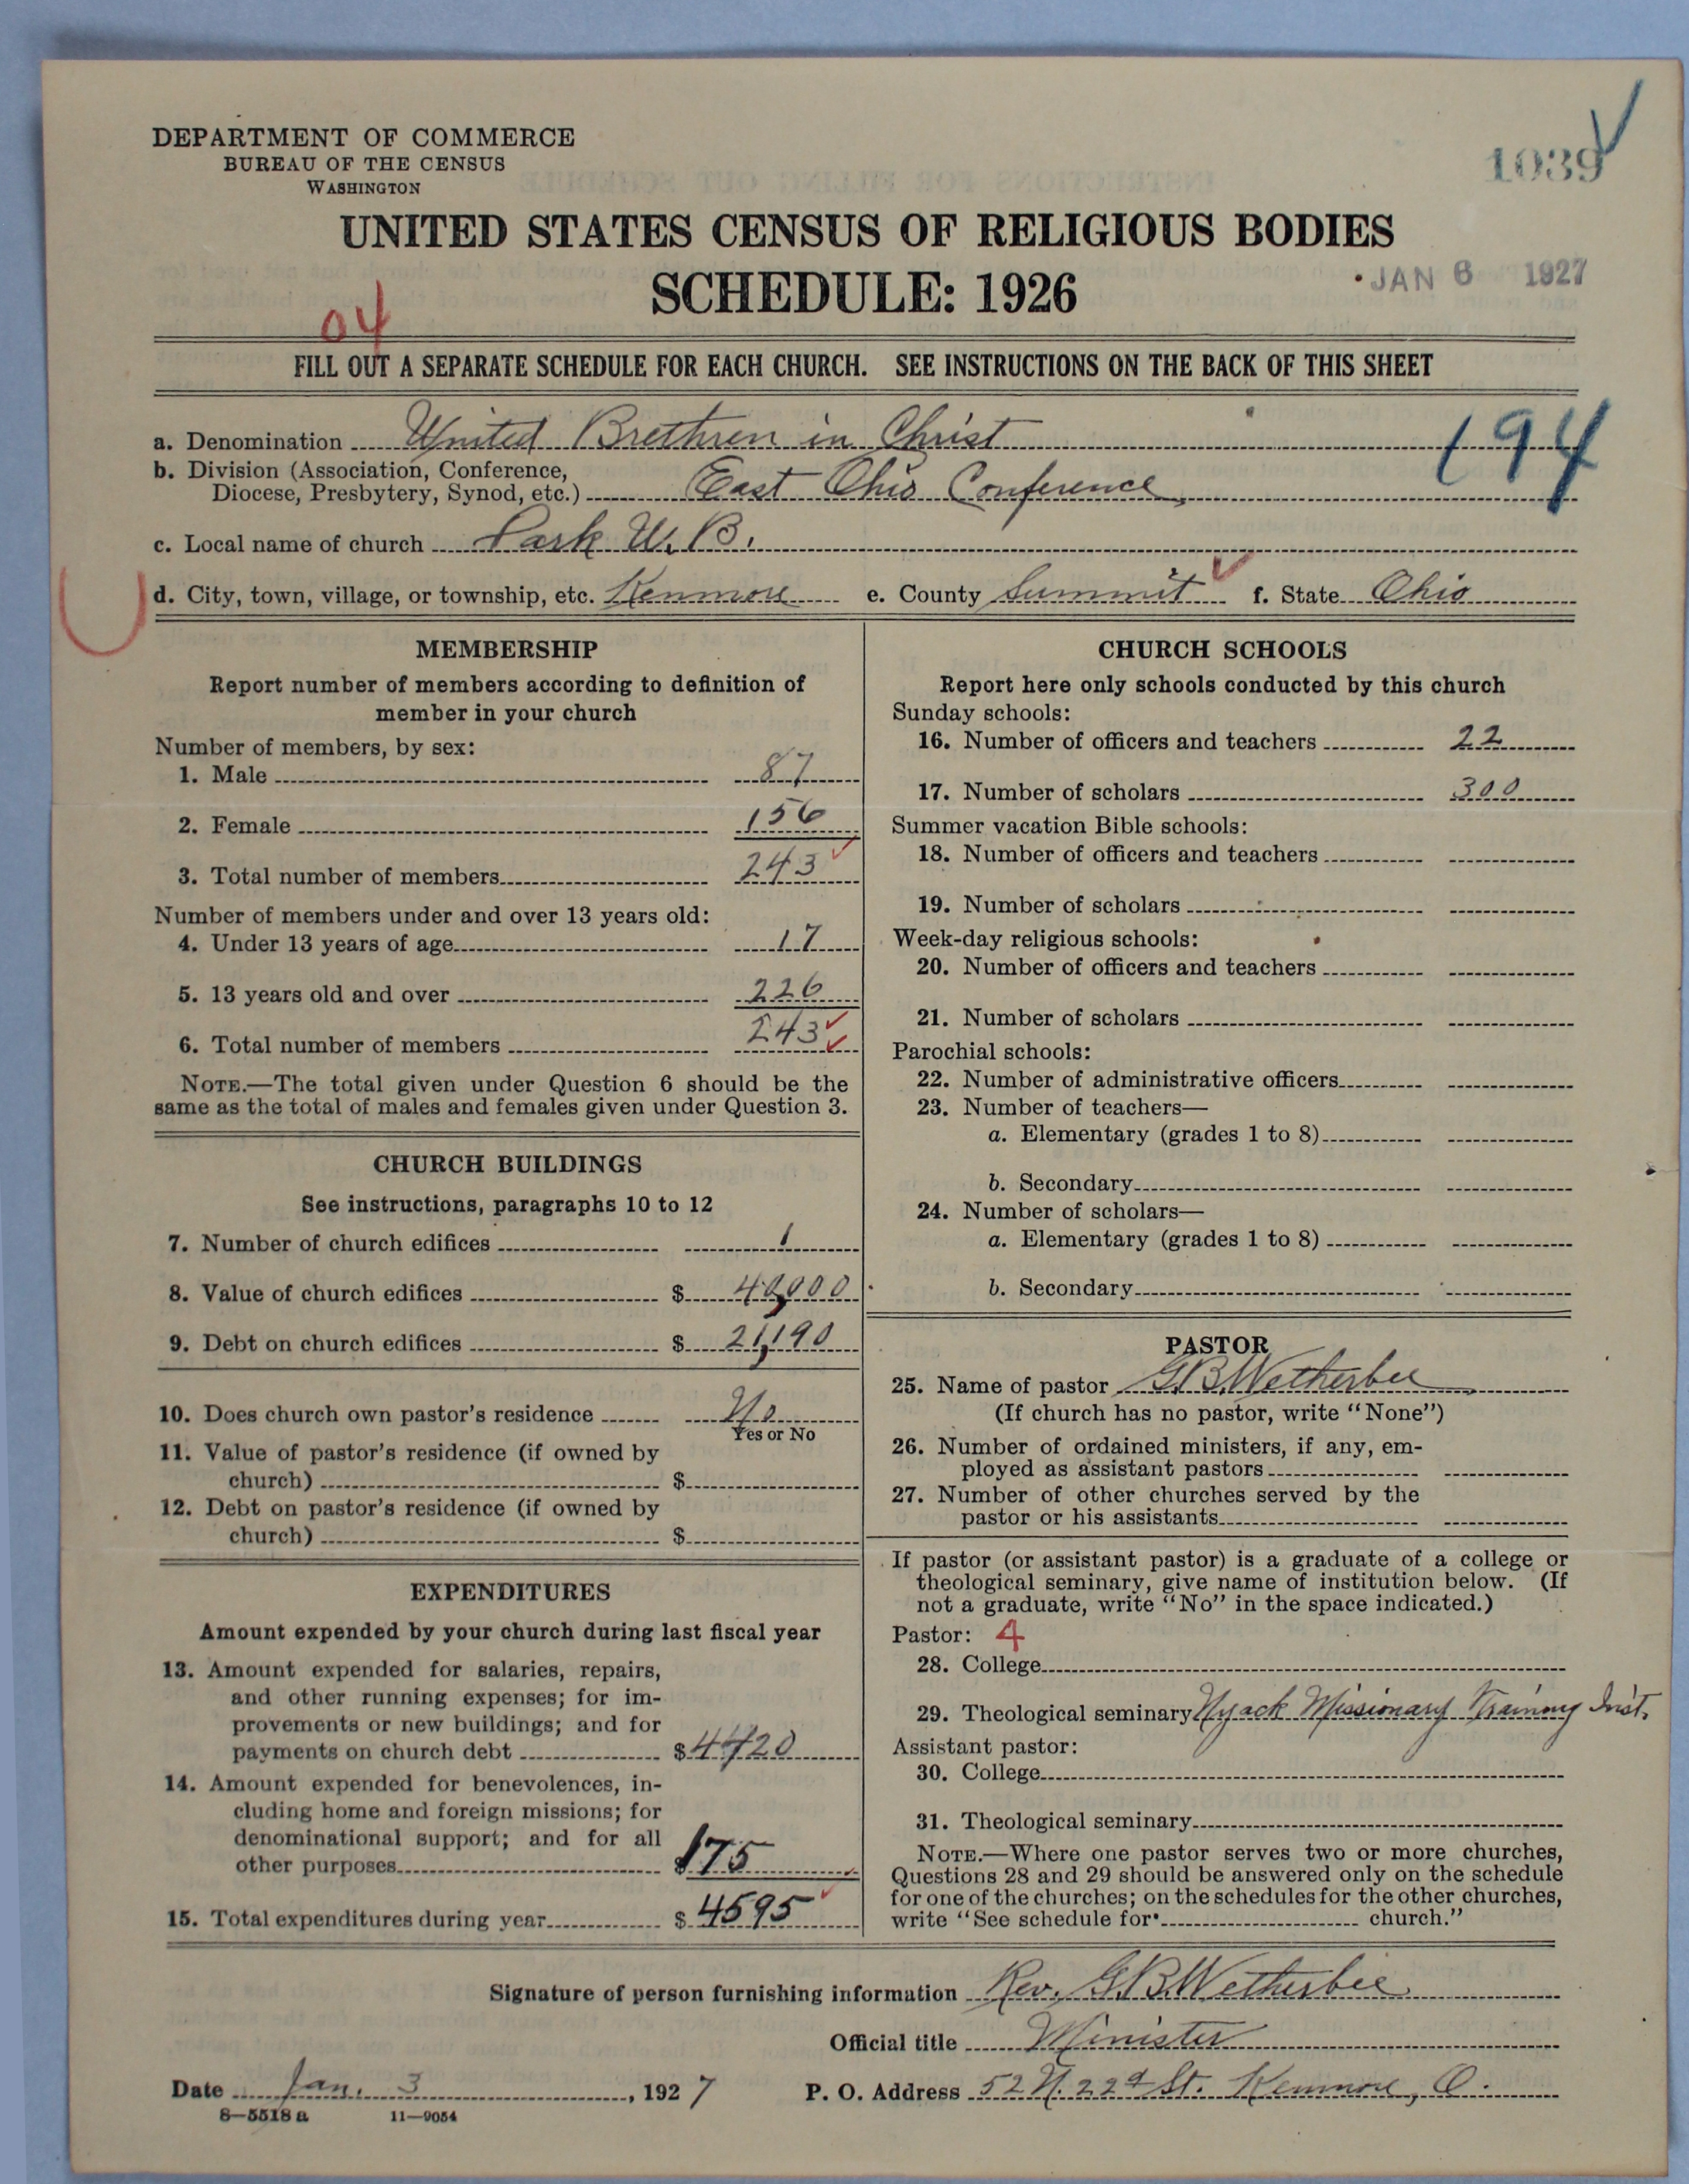 DEPARTMENT OF COMMERCE
BUREAU OF THE CENSUS
WASHINGTON
1039
UNITED STATES CENSUS OF RELIGIOUS BODIES
SCHEDULE: 1926
JAN 6 1927
04
FILL OUT A SEPARATE SCHEDULE FOR EACH CHURCH. SEE INSTRUCTIONS ON THE BACK OF THIS SHEET
194
a. Denomination United Brethren in Christ
b. Division (Association, Conference,
Diocese, Presbytery, Synod, etc.) East Ohio Conference
c. Local name of church Park U.B.
d. City, town, village, or township, etc. Kenmore e. County Summit f. State Ohio
MEMBERSHIP
Report number of members according to definition of
member in your church
Number of members, by sex:
1. Male 87
2. Female 156
3. Total number of members 243
Number of members under and over 13 years old:
4. Under 13 years of age 17
5. 13 years old and over 226
6. Total number of members 243
NOTE.—The total given under Question 6 should be the
same as the total of males and females given under Question 3.
CHURCH BUILDINGS
See instructions, paragraphs 10 to 12
7. Number of church edifices 1
8. Value of church edifices $ 40,000
9. Debt on church edifices $ 21,190
10. Does church own pastor's residence No
Yes or No
11. Value of pastor's residence (if owned by
church) $
12. Debt on pastor's residence (if owned by
church) $
EXPENDITURES
Amount expended by your church during last fiscal year
13. Amount expended for salaries, repairs,
and other running expenses; for im-
provements or new buildings; and for
payments on church debt $ 4420
14. Amount expended for benevolences, in-
cluding home and foreign missions; for
denominational support; and for all
other purposes $175
15. Total expenditures during year $ 4595
CHURCH SCHOOLS
Report here only schools conducted by this church
Sunday schools:
16. Number of officers and teachers 22
17. Number of scholars 300
Summer vacation Bible schools:
18. Number of officers and teachers
19. Number of scholars
Week-day religious schools:
20. Number of officers and teachers
21. Number of scholars
Parochial schools:
22. Number of administrative officers
23. Number of teachers—
a. Elementary (grades 1 to 8)
b. Secondary
24. Number of scholars—
a. Elementary (grades 1 to 8)
b. Secondary
PASTOR
25. Name of pastor G.B. Wetherbee
(If church has no pastor, write "None")
26. Number of ordained ministers, if any, em-
ployed as assistant pastors
27. Number of other churches served by the
pastor or his assistants
If pastor (or assistant pastor) is a graduate of a college or
theological seminary, give name of institution below. (If
not a graduate, write "No" in the space indicated.)
Pastor: 4
28. College
29. Theological seminary Nyack Missionary Training Inst.
Assistant pastor:
30. College
31. Theological seminary
NOTE.—Where one pastor serves two or more churches,
Questions 28 and 29 should be answered only on the schedule
for one of the churches; on the schedules for the other churches,
write "See schedule for church."
Signature of person furnishing information Rev. G.B. Wetherbee
Official title Minister
Date Jan. 3, 1927 P. O. Address 52 N. 22d St. Kenmore, O.
8—5518 a 11—9054